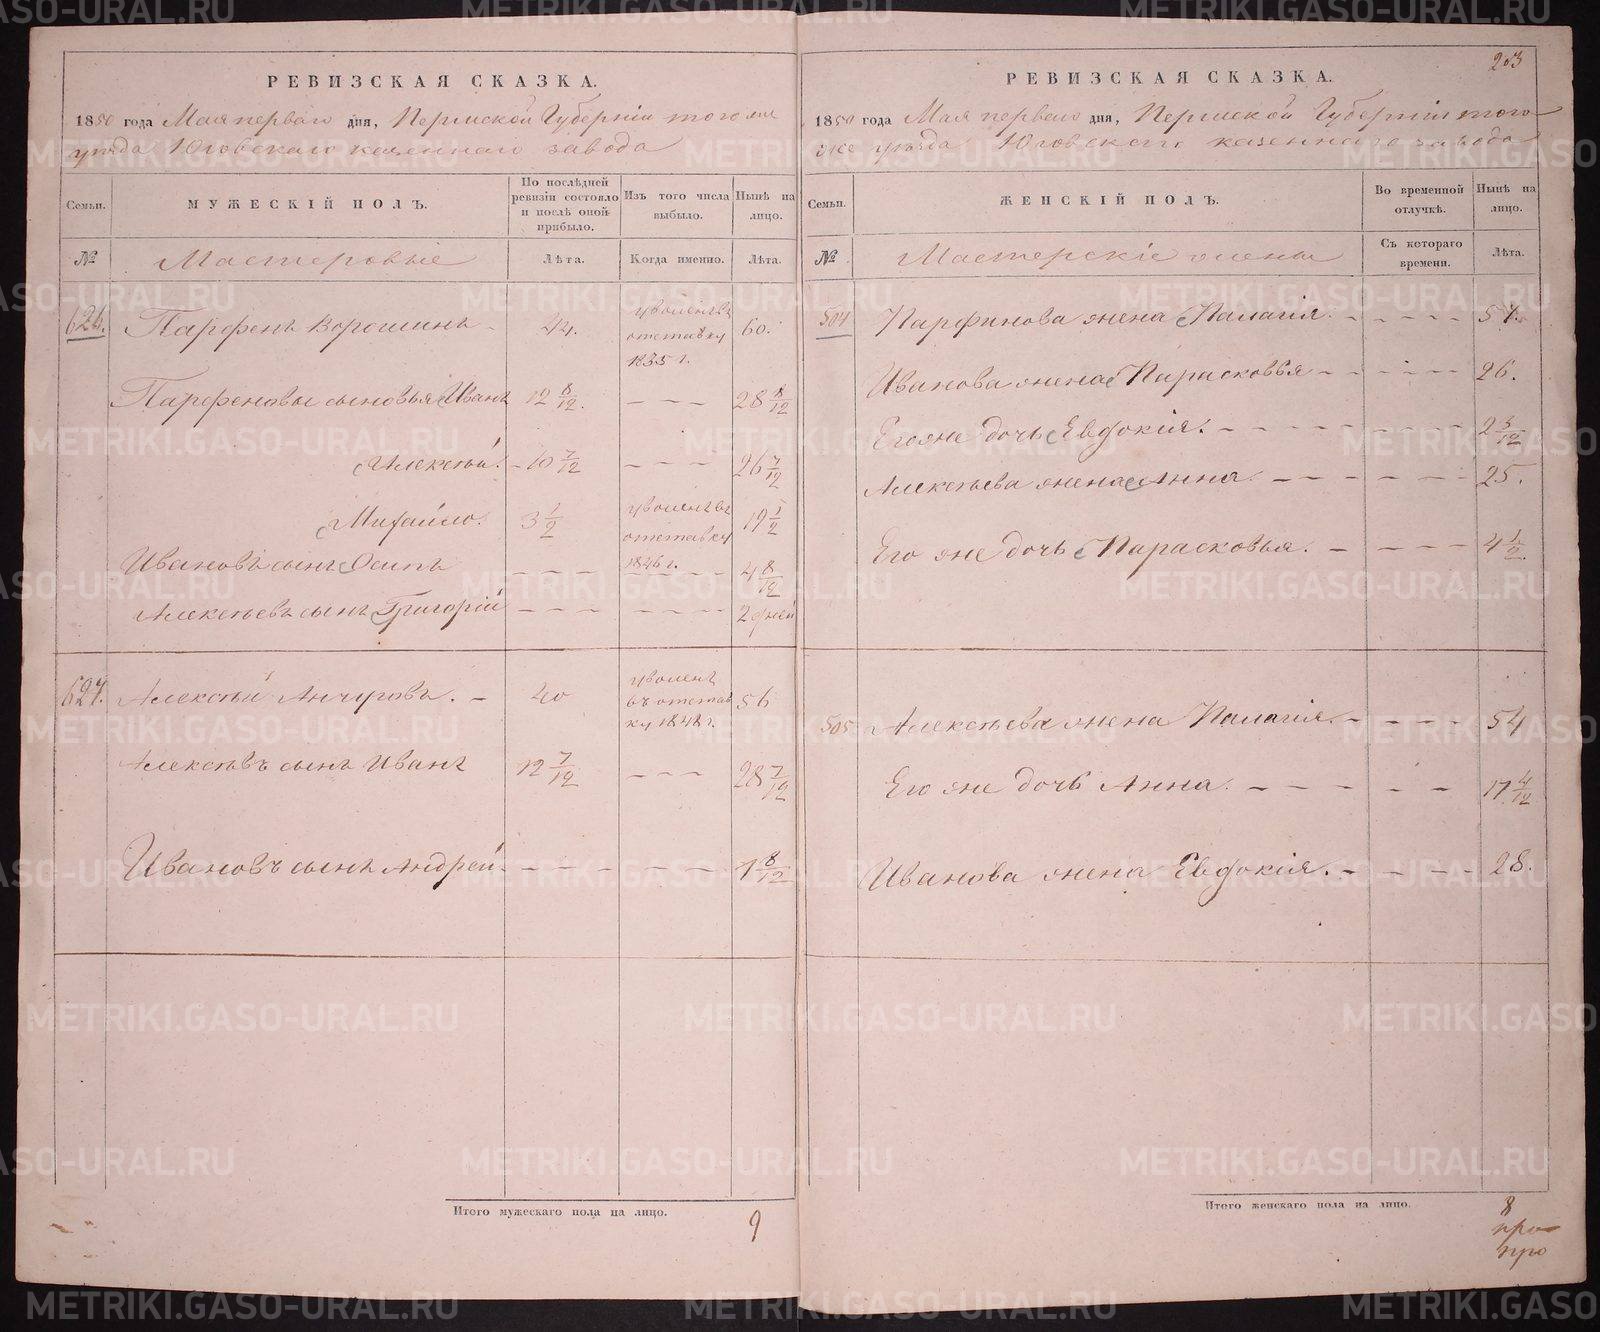 РЕВИЗСКАЯ СКАЗКА.
1850 года Мая перваго дня, Пермской Губерніи того же
уѣзда Юговскаго казеннаго завода
Семьи.
МУЖЕСКІЙ ПОЛЪ.
По послѣдней ревизіи состояло и послѣ оной прибыло.
Изъ того числа выбыло.
Нынѣ на лицо.
№
Мастеровые
Лѣта.
Когда именно.
Лѣта.
626. Парфенъ Ворошинъ - 44. уволенъ въ отставку 1835 г. 60.
Парфеновы сыновья Иванъ 12 8/12. - - - 28 8/12
Алексѣй. - 10 7/12 - - - 26 7/12
Михайло. 3 1/2 уволенъ въ отставку 1846 г. 19 1/2
Ивановъ сынъ Осипъ - - - - - - 4 8/12
Алексѣевъ сынъ Григорій - - - - - - 2 дней
627. Алексѣй Анчуговъ. - 40 уволенъ въ отставку 1848 г. 56
Алексѣевъ сынъ Иванъ 12 7/12 - - - 28 7/12
Ивановъ сынъ Андрей - - - - - - 1 8/12
Итого мужескаго пола на лицо. 9
203
РЕВИЗСКАЯ СКАЗКА.
1850 года Мая перваго дня, Пермской Губерніи того
же уѣзда Юговскаго казеннаго завода
Семьи.
ЖЕНСКІЙ ПОЛЪ.
Во временной отлучкѣ.
Нынѣ на лицо.
№
Мастерскіе жены
Съ котораго времени.
Лѣта.
504 Парфинова жена Палагія. - - - - - 57.
Иванова жена Парасковья - - - - - 26.
Его же дочь Евдокія. - - - - - 2 3/12
Алексѣева жена Анна. - - - - - 25.
Его же дочь Парасковья. - - - - 4 1/2.
505 Алексѣева жена Палагія. - - - - 54
Его же дочь Анна. - - - - - - 17 4/12
Иванова жена Евдокія. - - - - 28.
Итого женскаго пола на лицо. 8
METRIKI.GASO-URAL.RU